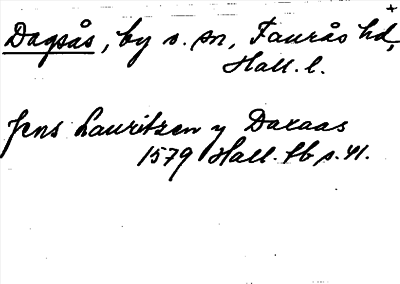 Dagsås, by o. sn, Faurås hd,
Hall. l.
Jens Lauritzen y Daxaas
1579 Hall. lb s. 41.